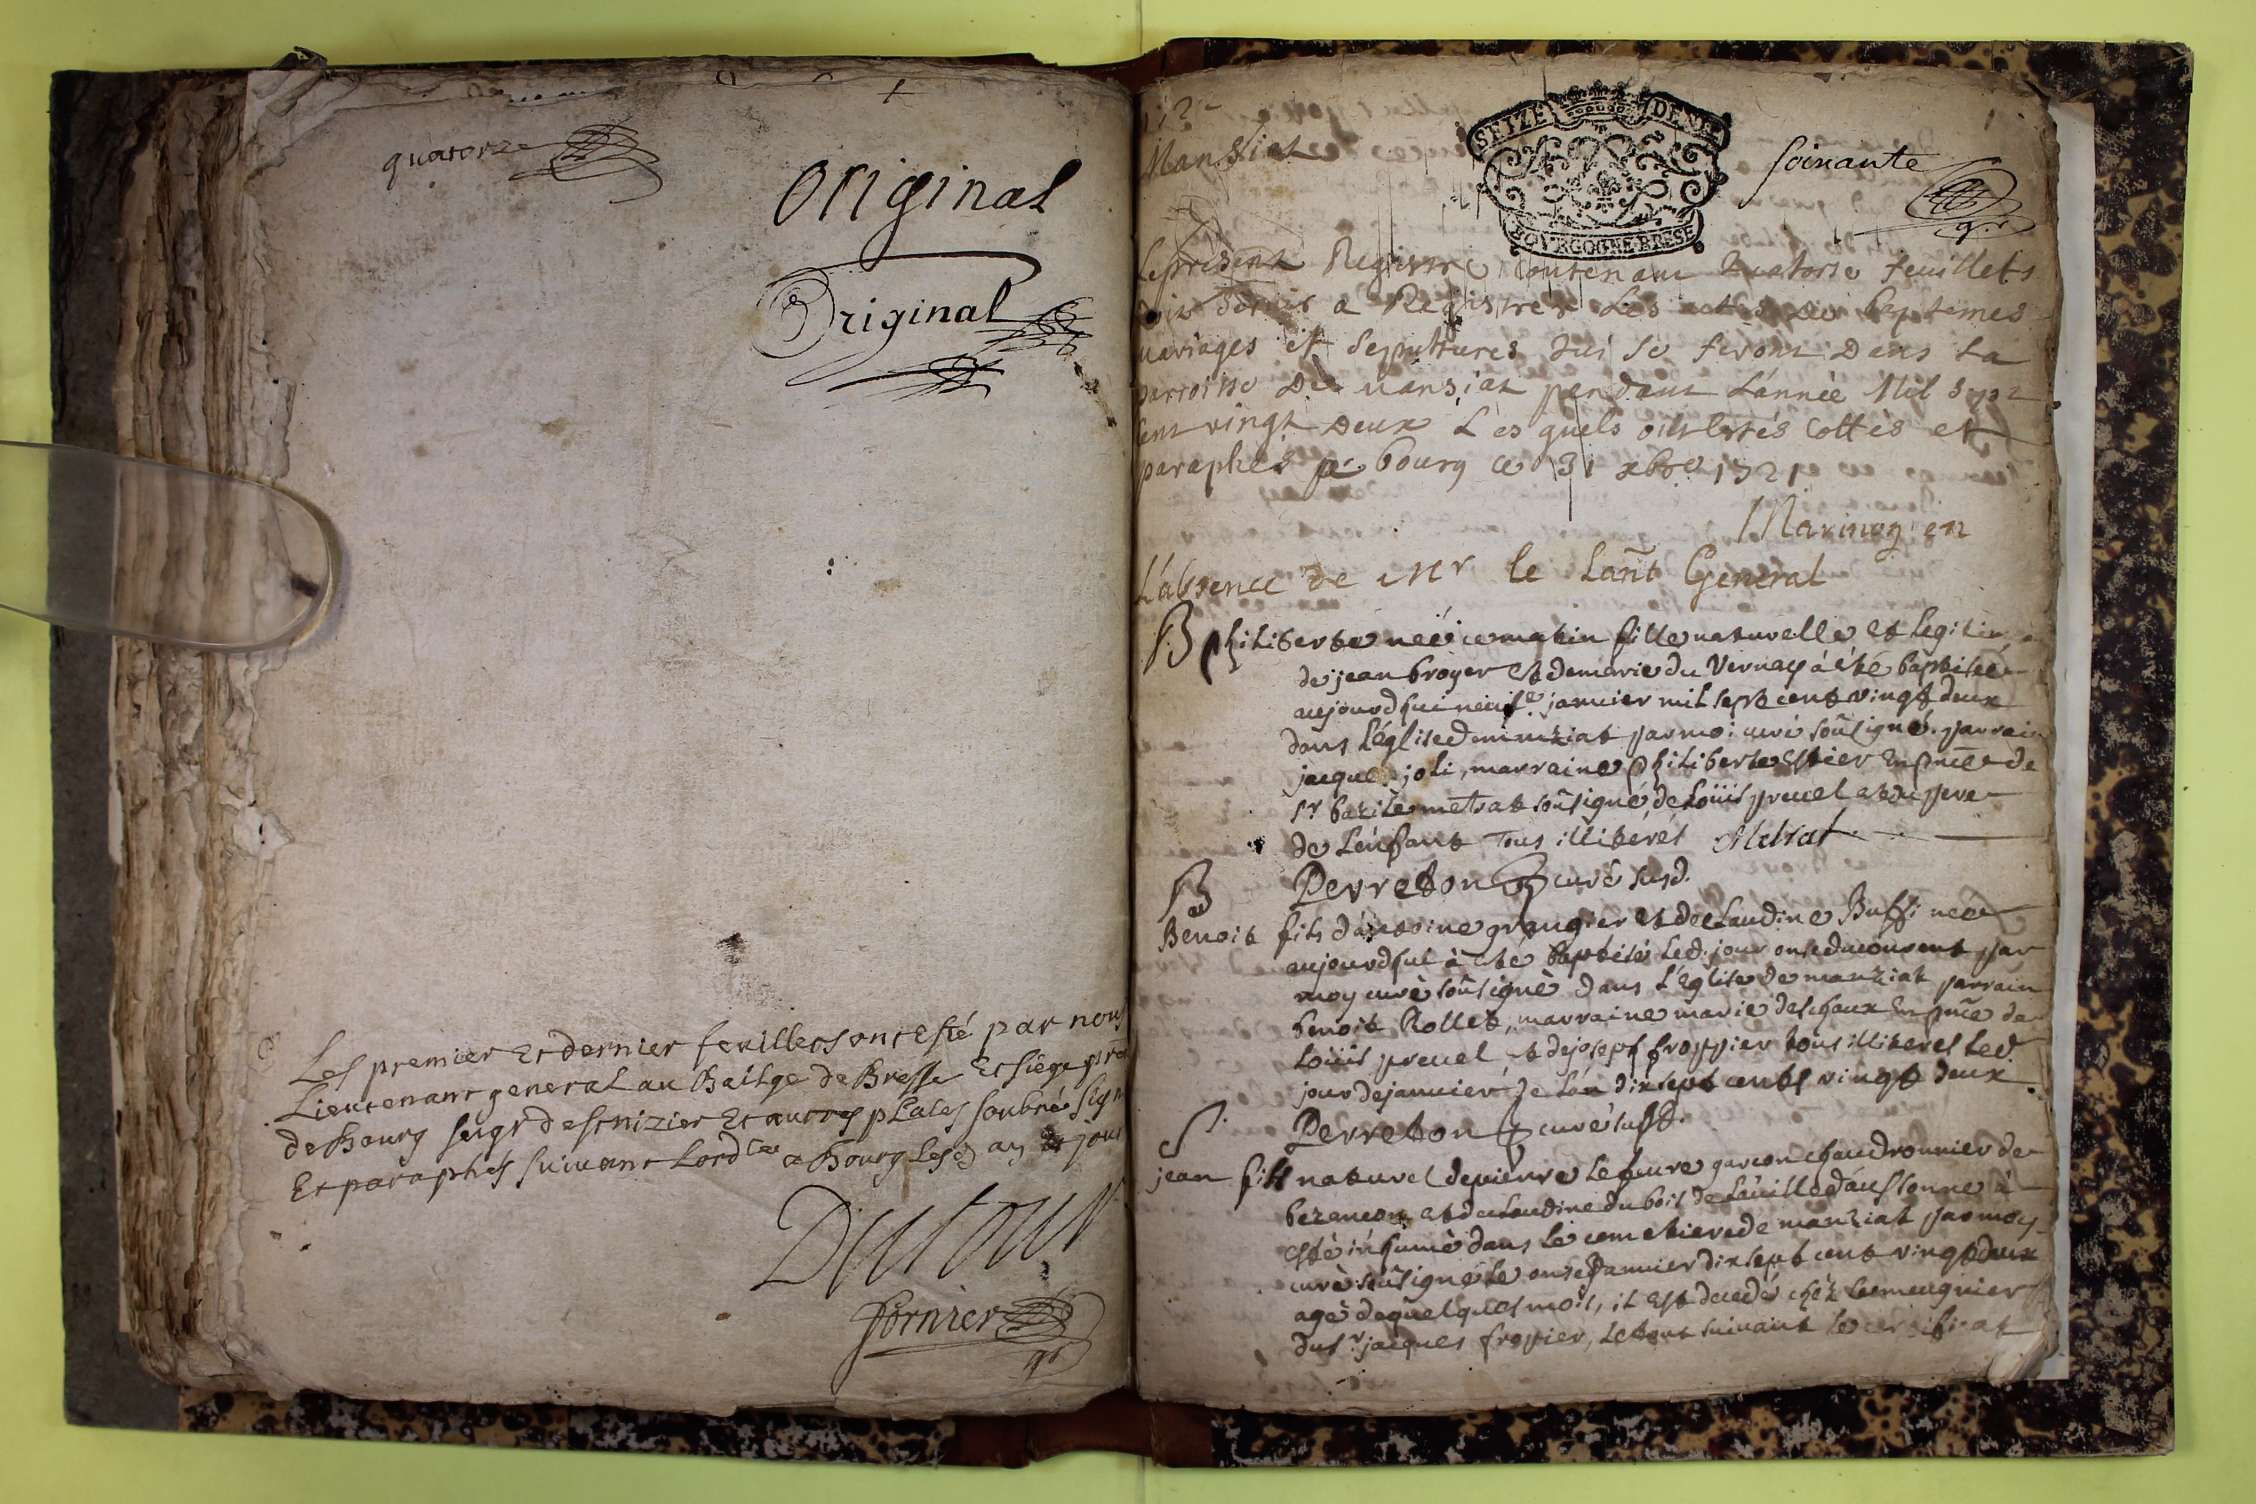 quatorze
Original
Original
Les premier et dernier feuillets ont esté par nous
Lieutenant general au Bailge de Bresse et siege
de Bourg seigr de st nizier et autres places soubné
Et paraphés suivant Lord a Bourg les an et jour
Dutour
fornier
Mansiat
SEIZE DENI
BOVRGOGNE BRESE
soixante
Le present Registre Contenant quatorse feuillets
a Registrer Les actes de baptemes
mariages et sepultures qui se feront dans La
parroisse De mansiat pendant L'année Mil sept
cent vingt deux Lesquels ont estés cottés et
paraphes a bourg ce 31 xbre 1721
en
L'absence de Mr le Lant General
B philiberte neé ce matin fille naturelle et legitime
de jean broyer et de marie du Vernay à été baptiseé
aujourdhui neuf janvier mil sept cent vingt deux
dans L'église de manziat par moi curé soûsigné. parrain
jacques joli, marraine philiberte en pñce de
sr bazile metrat soûsigné, de Loüis prevel et du pere
de L'enfant Tous illiterés Metrat
Perreton curé susd.
B
Benoit fils d'antoine grangier et de Claudine Buffi neé
aujourdhui à été baptisé led. jour onse du courent par
moy curé soûsigné dans L'eglise de manziat parrain
benoit Rollet, marraine marie deschaux en pñce de
Loüis prevel et de joseph froppier tous illiteres led.
jour de janvier de L'an dix sept cents vingt deux.
Perreton curé susd.
S.
jean fils naturel de pierre Lefeuvre garcon chaudronnier de
bezancon et de Claudine du bois de La ville d'aussonne à
esté inhumé dans Le cemetiere de manziat par moy
curé soûsigné le onse janvier dix sept cent vingt deux
agé de quelques mois, il est decedé chéz Le meugnier
du sr jacques fropier, Le tout suivant le certificat